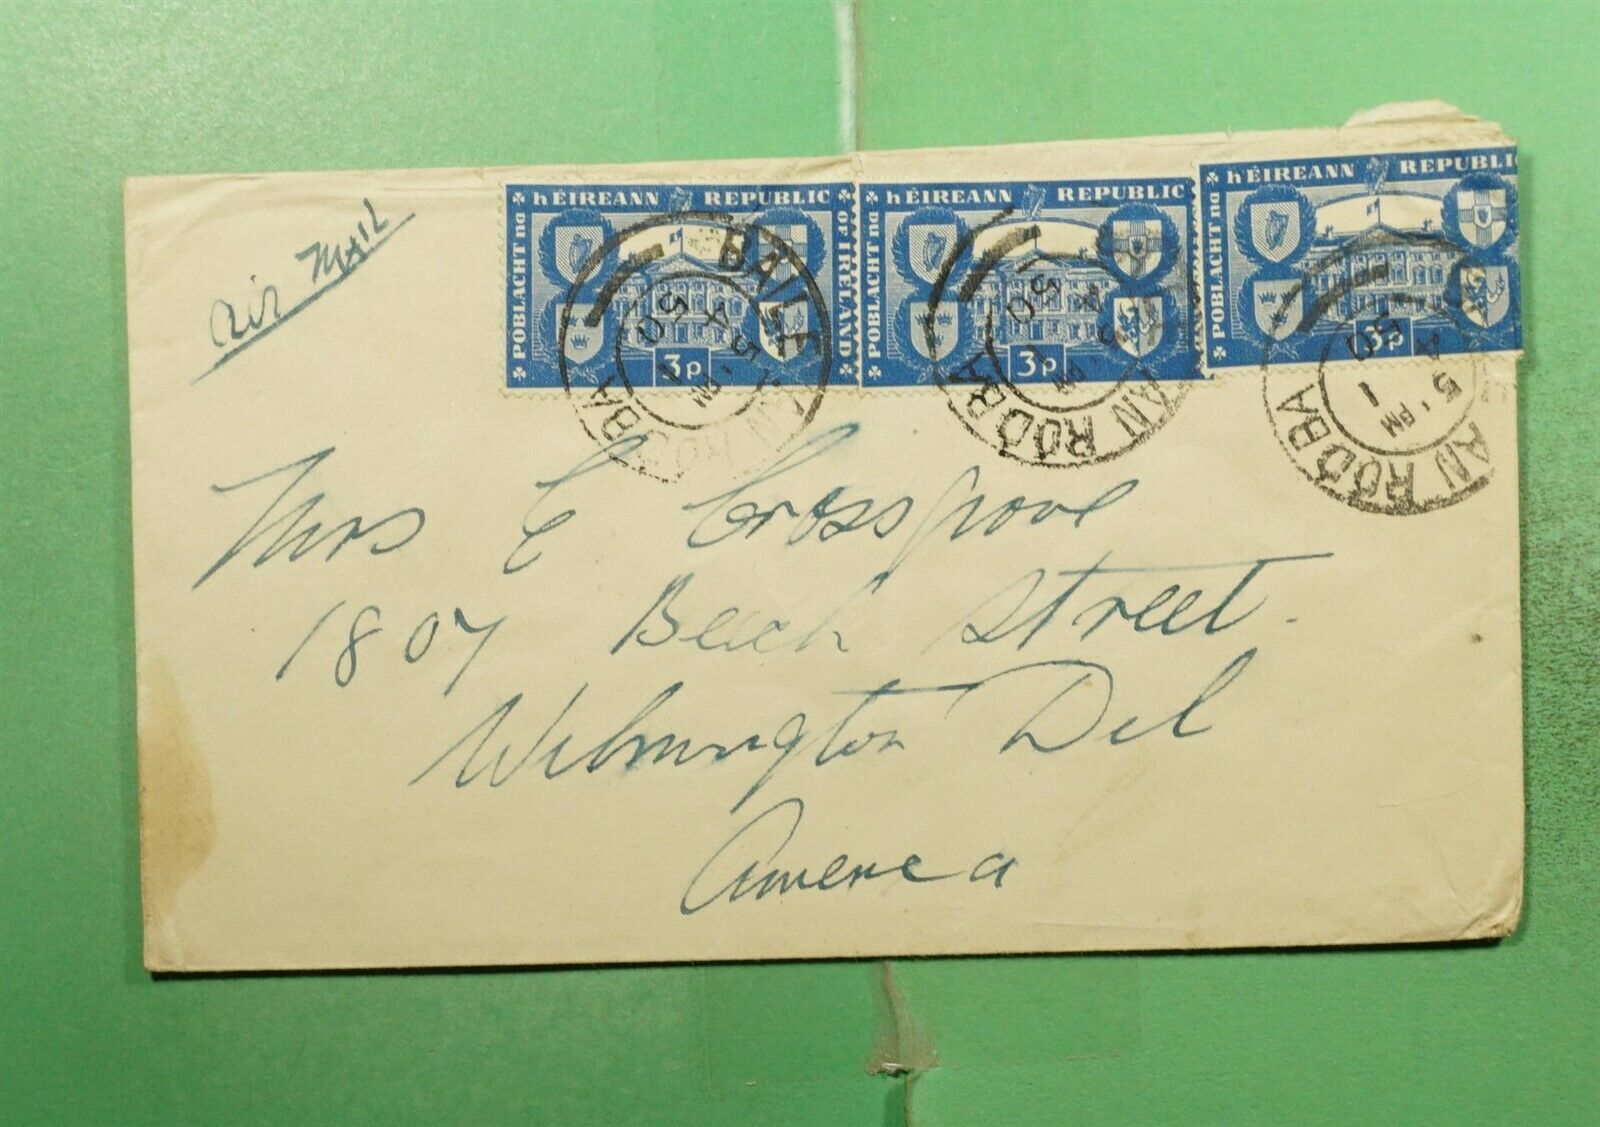 air MAIL
POBLACHT na hÉIREANN REPUBLIC OF IRELAND
3p
POBLACHT na hÉIREANN REPUBLIC
3p
POBLACHT na hÉIREANN REPUBLIC
3p
BAILE AN RODBA
5 PM
4
1
50
AN RODBA
5 PM
4
1
50
AN RODBA
5 PM
4
1
50
Mrs E Crossgrove
1807 Beech Street.
Wilmington Del
America